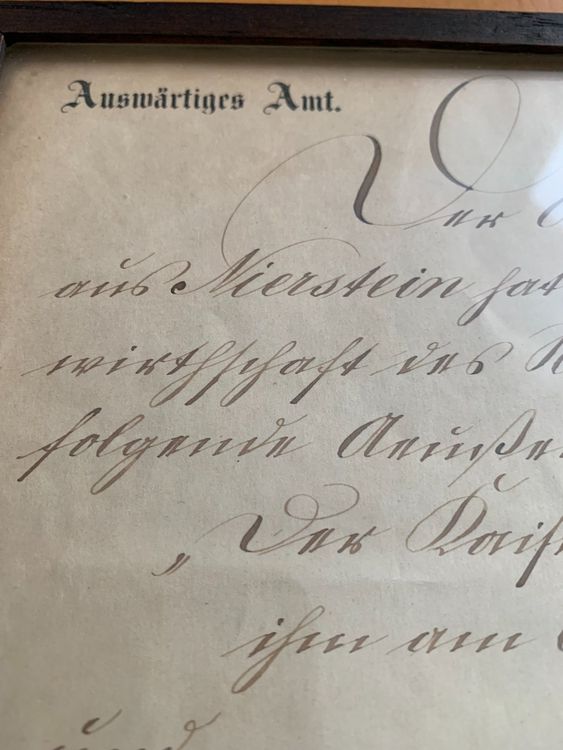 Auswärtiges Amt.
Der
aus Nierstein hat
wirthschaft des
folgende Aeuße
„Der Kais
ihm am
und